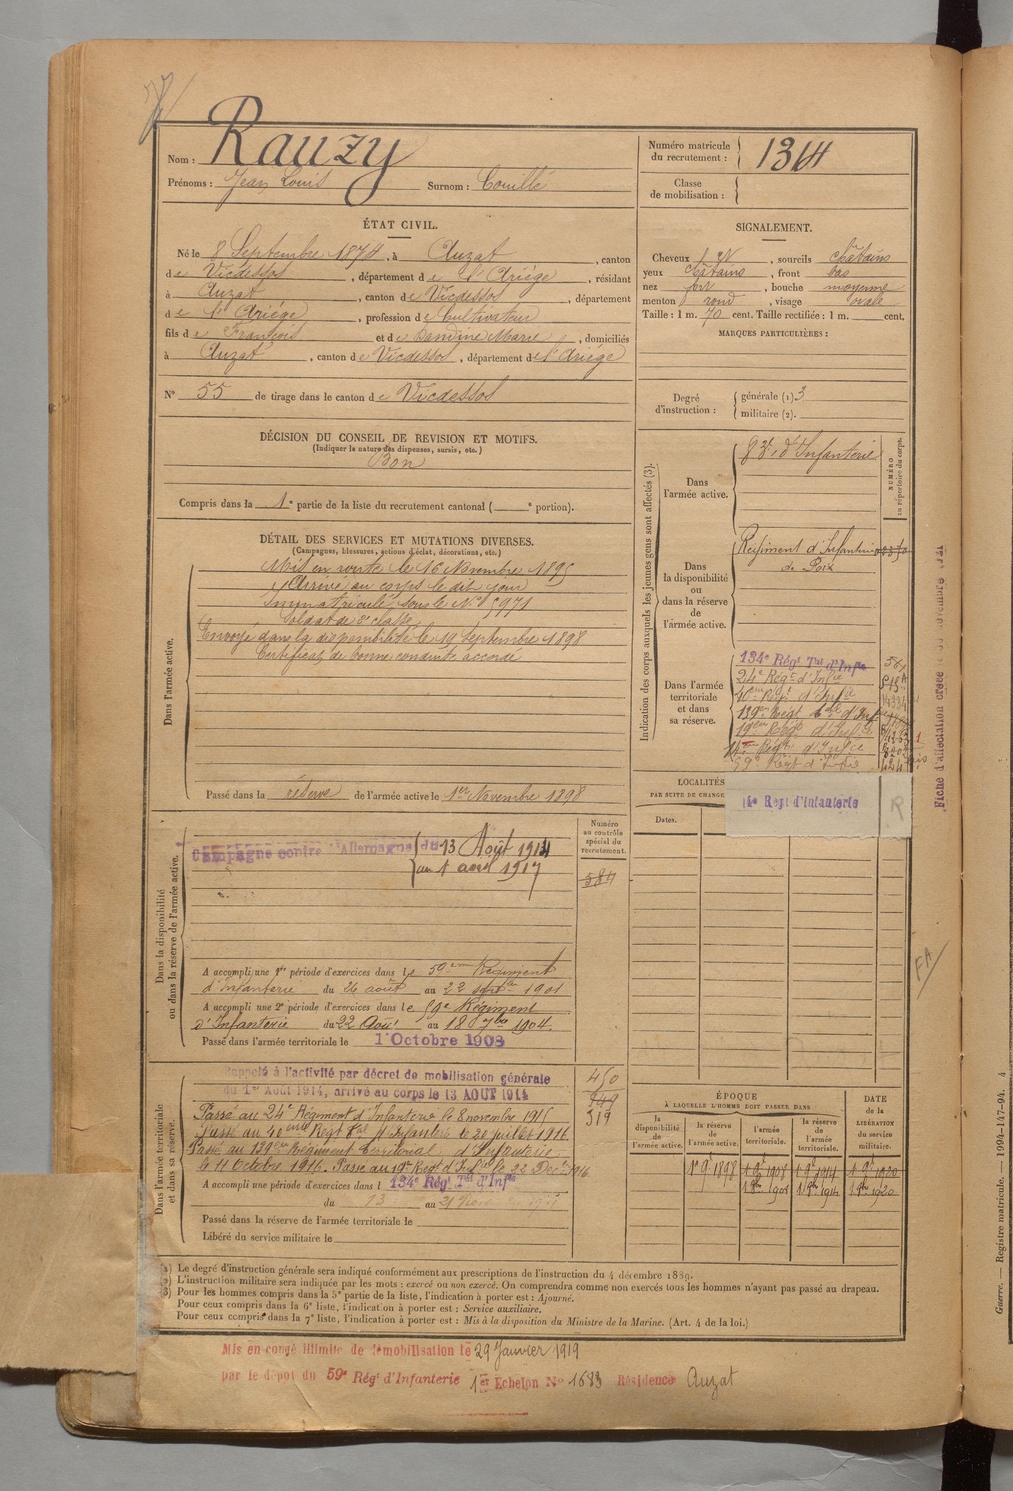 Nom : Rauzy
Prénoms : Jean Louis Surnom : Couillé
Numéro matricule du recrutement : 1364
Classe de mobilisation :
ÉTAT CIVIL.
Né le 8 Septembre 1874, à Auzat, canton
de Vicdessos, département de l'Ariége, résidant
à Auzat, canton de Vicdessos, département
de l'Ariége, profession de Cultivateur
fils de François et de Dandine Marie, domiciliés
à Auzat, canton de Vicdessos, département de l'Ariége
N° 55 de tirage dans le canton de Vicdessos
DÉCISION DU CONSEIL DE REVISION ET MOTIFS.
(Indiquer la nature des dispenses, sursis, etc.)
Bon
Compris dans la 1e partie de la liste du recrutement cantonal ( e portion).
SIGNALEMENT.
Cheveux , sourcils châtains
yeux châtains, front bas
nez fort, bouche moyenne
menton rond, visage ovale
Taille : 1 m. 70 cent. Taille rectifiée : 1 m. cent.
MARQUES PARTICULIÈRES :
Degré d'instruction : générale (1) 3
militaire (2).
DÉTAIL DES SERVICES ET MUTATIONS DIVERSES.
(Campagnes, blessures, actions d'éclat, décorations, etc.)
Dans l'armée active.
Mis en route le 16 Novembre 1895
Arrivé au corps le dit jour
Immatriculé sous le N° 5971
Soldat de 2e classe
Envoyé dans la disponibilité le 19 Septembre 1898
Certificat de bonne conduite accordé
Passé dans la réserve de l'armée active le 1er Novembre 1898
Indication des corps auxquels les jeunes gens sont affectés (3).
NUMÉRO au répertoire du corps.
Dans l'armée active.
83e d'Infanterie
Dans la disponibilité ou dans la réserve de l'armée active.
Régiment d'Infanterie
de Foix
Dans l'armée territoriale et dans sa réserve.
134e Régt Tal d'Infie
24e Régt d'Infie
40em Régt d'Infie
139em Régt tal d'Infie
19em Régt d'Infie
14e Régt d'Infie
59e Régt d'Infie
LOCALITÉS
PAR SUITE DE CHANGE
14e Regt d'Infanterie R
Dates.
Dans la disponibilité ou dans la réserve de l'armée active.
Numéro au contrôle spécial du recrutement.
584
Campagne contre l'Allemagne du 13 Août 1914
au 1 avril 1917
A accompli une 1re période d'exercices dans le 59em Régiment
d'Infanterie du 26 août au 22 septbre 1901
A accompli une 2e période d'exercices dans le 59e Régiment
d'Infanterie du 22 Août au 18 7bre 1904.
Passé dans l'armée territoriale le 1er Octobre 1908
Dans l'armée territoriale et dans sa réserve.
Rappelé à l'activité par décret de mobilisation générale
du 1er Août 1914, arrivé au corps le 13 AOUT 1914
450
949
319
Passé au 24e Régiment d'Infanterie le 8 novembre 1915
Passé au 40eme Régt d'Infanterie le 20 juillet 1916.
Passé au 139em Régiment territorial d'Infanterie
le 11 Octobre 1916. Passé au 19e Regt d'Infie le 22 Dec 1916
A accompli une période d'exercices dans l 134e Régt Tal d'Infie
du 13 au 21
Passé dans la réserve de l'armée territoriale le
Libéré du service militaire le
ÉPOQUE
À LAQUELLE L'HOMME DOIT PASSER DANS
la disponibilité de l'armée active.
la réserve de l'armée active.
l'armée territoriale.
la réserve de l'armée territoriale.
DATE de la LIBÉRATION du service militaire.
1er 9bre 1898
1er 9bre 1908
1er 9bre 1914
1er 9bre 1920
1er 8bre 1908
1er 8bre 1914
1er 8bre 1920
(1) Le degré d'instruction générale sera indiqué conformément aux prescriptions de l'instruction du 4 décembre 1889.
(2) L'instruction militaire sera indiquée par les mots : exercé ou non exercé. On comprendra comme non exercés tous les hommes n'ayant pas passé au drapeau.
(3) Pour les hommes compris dans la 5e partie de la liste, l'indication à porter est : Ajourné.
Pour ceux compris dans la 6e liste, l'indication à porter est : Service auxiliaire.
Pour ceux compris dans la 7e liste, l'indication à porter est : Mis à la disposition du Ministre de la Marine. (Art. 4 de la loi.)
Mis en congé illimité de démobilisation le 29 Janvier 1919
par le dépôt du 59e Régt d'Infanterie 1er Echelon N° 1683 Résidence Auzat
FA
Guerre. — Registre matricule. — 1994-147-94. 4